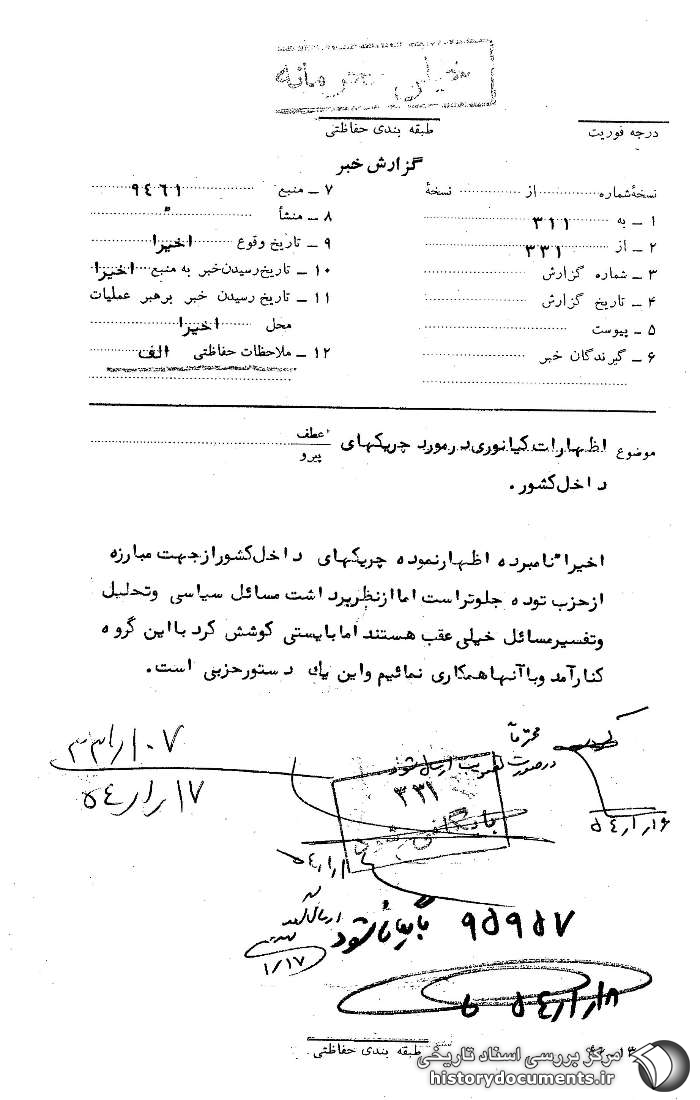 خیلی محرمانه
درجه فوریت
طبقه بندی حفاظتی
گزارش خبر
نسخهٔ شماره ............ از ............ نسخهٔ
۱ ــ به ۳۱۱
۲ ــ از ۳۳۱
۳ ــ شماره گزارش
۴ ــ تاریخ گزارش
۵ ــ پیوست
۶ ــ گیرندگان خبر
۷ ــ منبع ۹۴۶۱
۸ ــ منشأ
۹ ــ تاریخ وقوع اخیرا
۱۰ ــ تاریخ رسیدن خبر به منبع اخیرا
۱۱ ــ تاریخ رسیدن خبر برهبر عملیات
محل اخیرا
۱۲ ــ ملاحظات حفاظتی الف
موضوع اظهارات کیانوری در مورد چریکهای
داخل کشور .
عطف
پیرو
اخیرا" نامبرده اظهارنموده چریکهای داخل کشور از جهت مبارزه
از حزب توده جلوتر است اما از نظر برداشت مسائل سیاسی وتحلیل
وتفسیر مسائل خیلی عقب هستند اما بایستی کوشش کرد با این گروه
کنارآمد وبا آنها همکاری نمائیم واین یك دستور حزبی است.
محترماً
در صورت تصویب ارسال شود
۱۶ر۱ر۵٤
۱۷ر۱ر۵٤
۳۳۱
بایگانی شود
۹۵۹۵۷
۱/۱۷
۱۸ر۱ر۵٤
طبقه بندی حفاظتی
مرکز بررسی اسناد تاریخی
historydocuments.ir